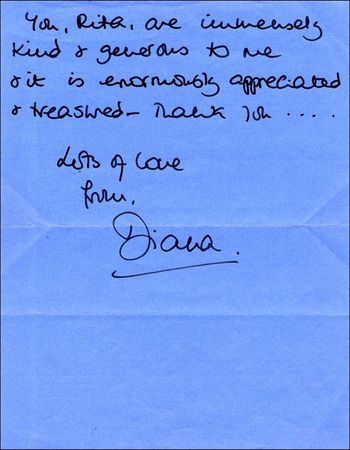 You, Rita, are immensely
kind & generous to me
& it is enormously appreciated
& treasured - Thank you ....
Lots of love
from,
Diana.